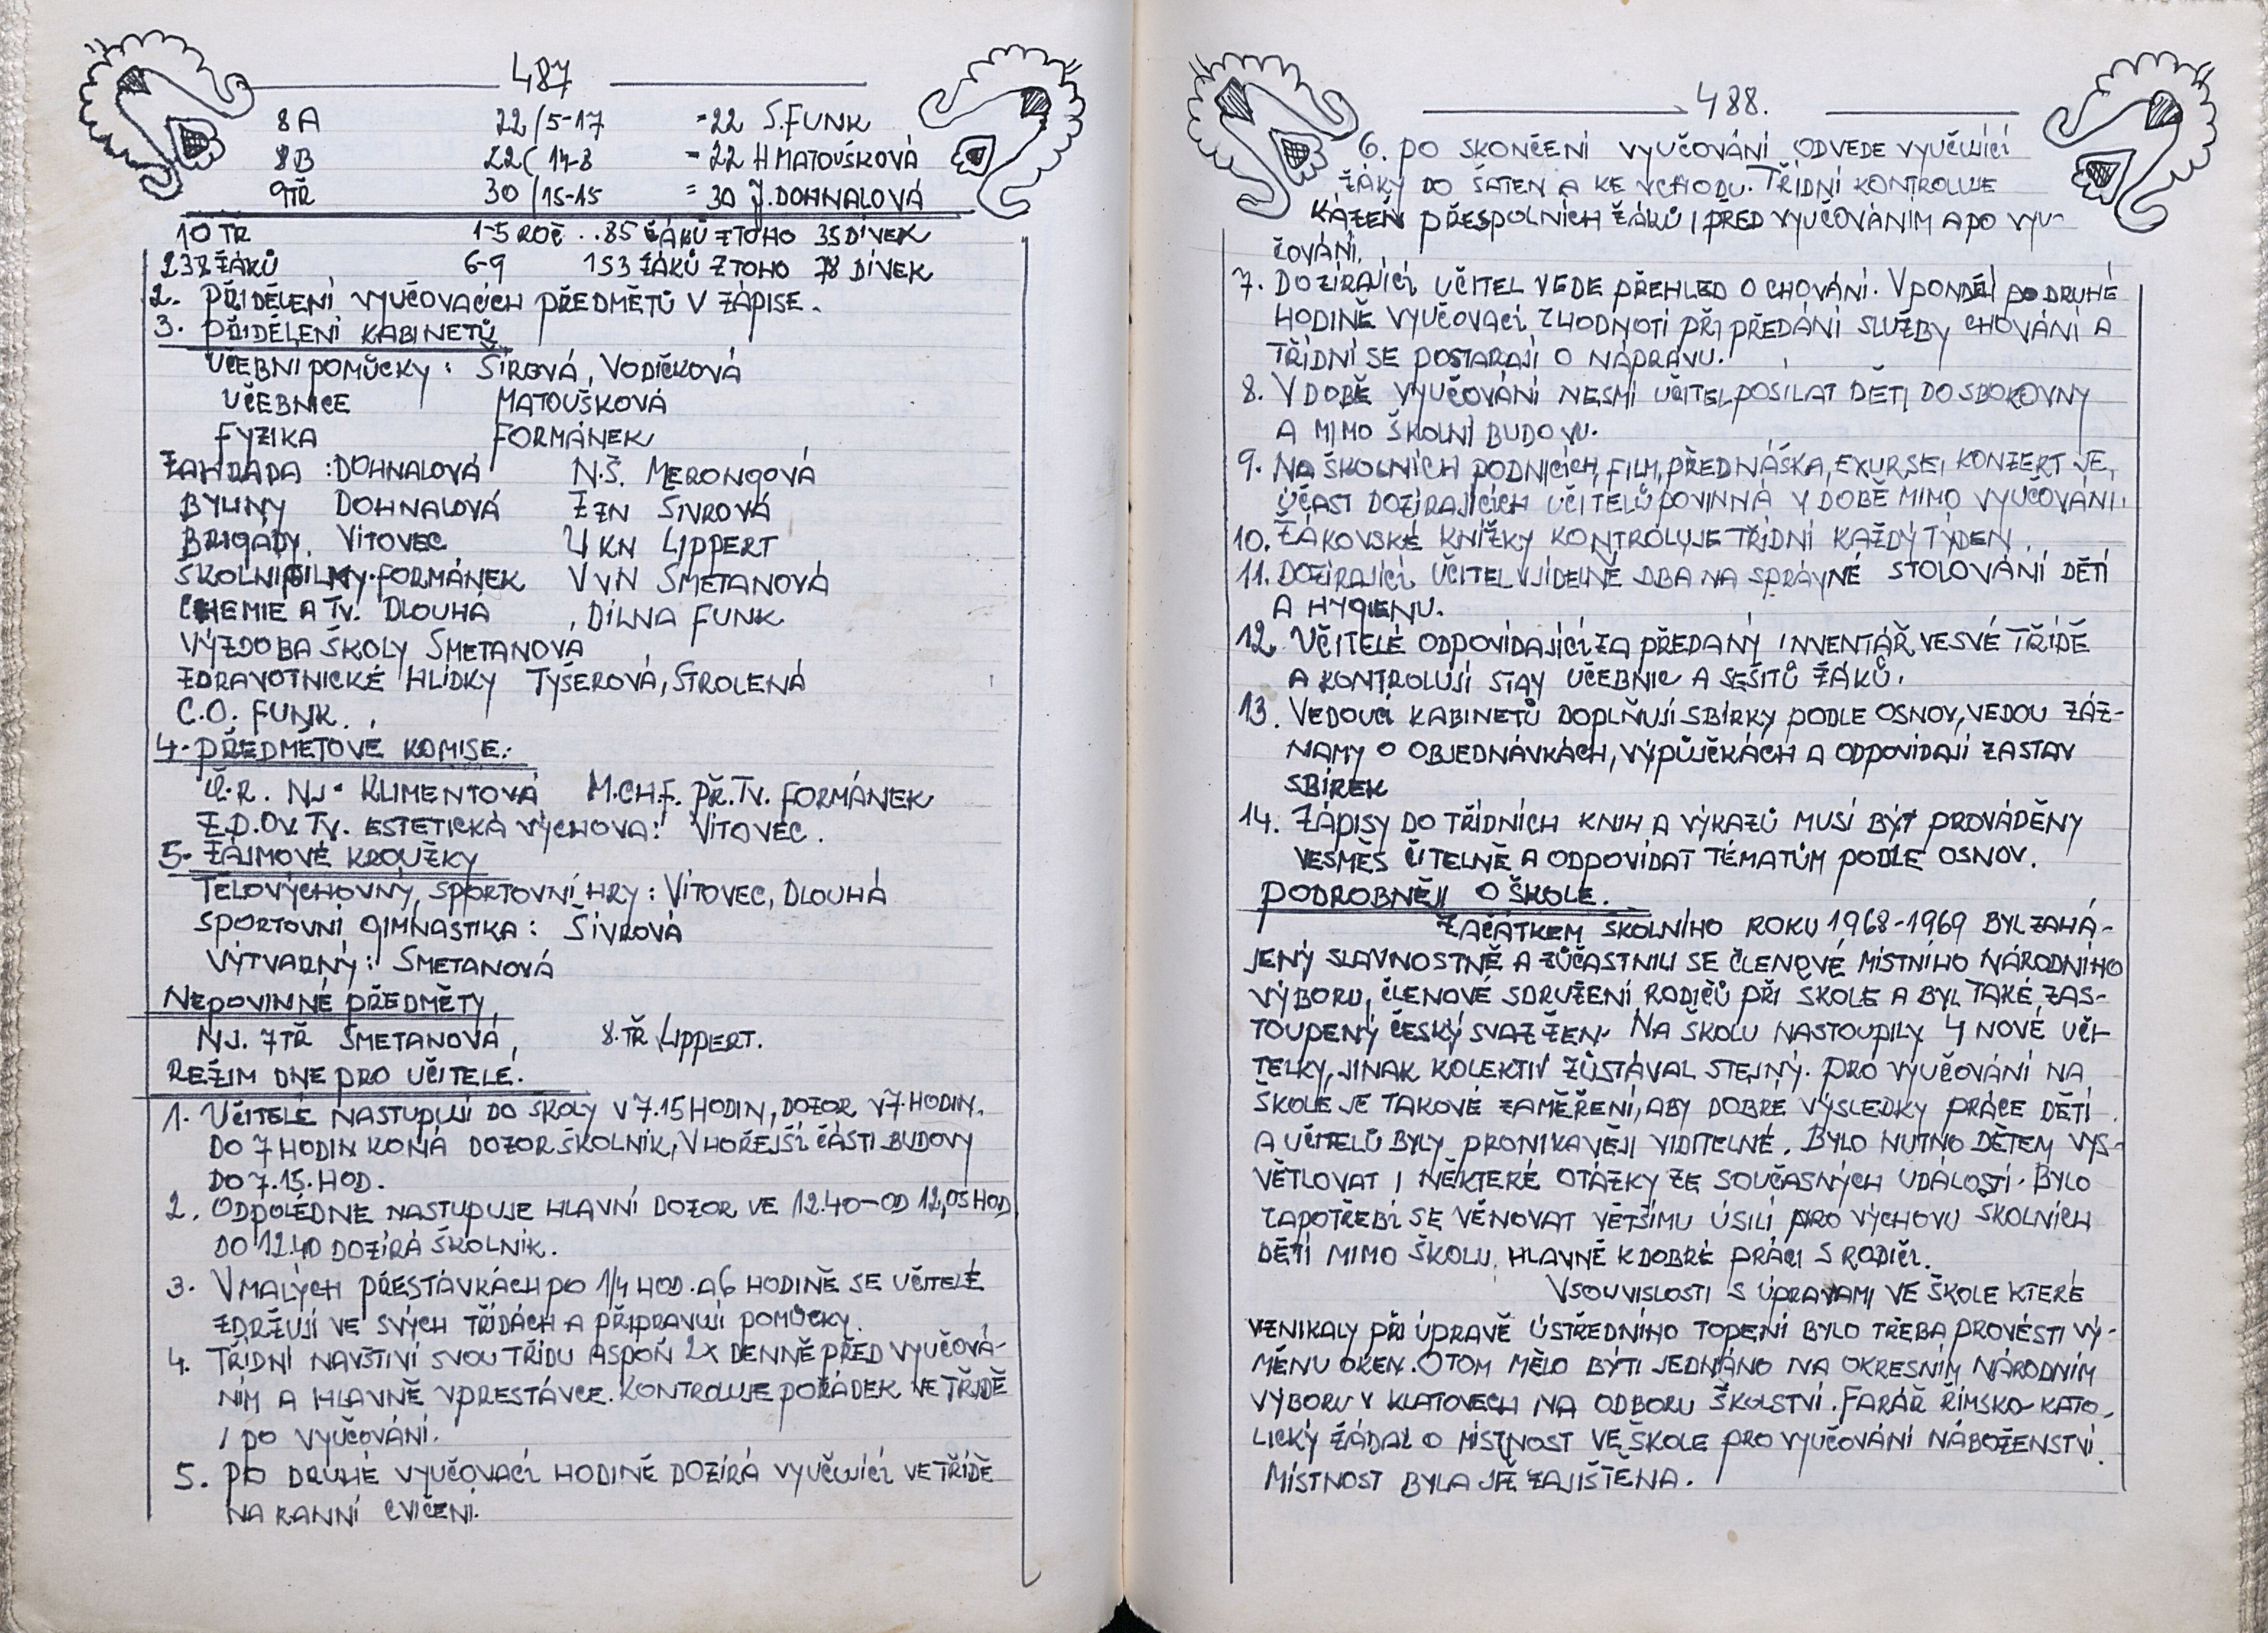 487
8A 22/5-17 =22 S. FUNK
8B 22(14-8 =22 H MATOUŠKOVÁ
9TŘ 30/15-15 =30 J. DOHNALOVÁ
10 TŘ 1-5 ROČ..85 ŽÁKŮ Z TOHO 35 DÍVEK
238 ŽÁKŮ 6-9 153 ŽÁKŮ Z TOHO 78 DÍVEK
2. PŘIDĚLENÍ VYUČOVACÍCH PŘEDMĚTŮ V ZÁPISE.
3. PŘIDĚLENÍ KABINETŮ
UČEBNI POMŮCKY: ŠÍROVÁ, VODIČKOVÁ
UČEBNICE MATOUŠKOVÁ
FYZIKA FORMÁNEK
ZAHRADA: DOHNALOVÁ N.Š. MERONGOVÁ
BYLINY DOHNALOVÁ ZZN ŠIVROVÁ
BRIGÁDY. VÍTOVEC UKN LIPPERT
ŠKOLNÍ FILMY. FORMÁNEK VVN SMETANOVÁ
CHEMIE A TV. DLOUHÁ, DÍLNA FUNK.
VÝZDOBA ŠKOLY SMETANOVA
ZDRAVOTNICKÉ HLÍDKY TYŠEROVÁ, STROLENÁ
C.O. FUNK.
4. PŘEDMĚTOVÉ KOMISE:
Č.R. NJ. KLIMENTOVÁ M.CH.F. PŘ. TV. FORMÁNEK
Z.D.OV. TV. ESTETICKÁ VÝCHOVA: VÍTOVEC.
5. ZÁJMOVÉ KROUŽKY
TĚLOVÝCHOVNÝ, SPORTOVNÍ HRY: VÍTOVEC, DLOUHÁ
SPORTOVNÍ GIMNASTIKA: ŠIVROVÁ
VÝTVARNÝ: SMETANOVÁ
NEPOVINNÉ PŘEDMĚTY,
NJ. 7TŘ SMETANOVÁ, 8.TŘ LIPPERT.
REŽIM DNE PRO UČITELE.
1. UČITELÉ NASTUPUJÍ DO ŠKOLY V 7.15 HODIN, DOZOR V 7 HODIN.
DO 7 HODIN KONÁ DOZOR ŠKOLNÍK, V HOŘEJŠÍ ČÁSTI BUDOVY
DO 7.15. HOD.
2. ODPOLEDNE NASTUPUJE HLAVNÍ DOZOR VE 12.40 - OD 12,05 HOD
DO 12.40 DOZÍRÁ ŠKOLNÍK.
3. V MALÝCH PŘESTÁVKÁCH PO 1/4 HOD. A 6 HODINĚ SE UČITELÉ
ZDRŽUJÍ VE SVÝCH TŘÍDÁCH A PŘIPRAVUJÍ POMŮCKY.
4. TŘÍDNÍ NAVŠTÍVÍ SVOU TŘÍDU ASPOŇ 2X DENNĚ PŘED VYUČOVÁ-
NÍM A HLAVNĚ V PRESTÁVCE. KONTROLUJE POŘÁDEK VE TŘÍDĚ
I PO VYUČOVÁNÍ.
5. PO DRUHÉ VYUČOVACÍ HODINĚ DOZÍRÁ VYUČUJÍCÍ VE TŘÍDĚ
NA RANNÍ CVIČENÍ.
488.
6. PO SKONČENÍ VYUČOVÁNÍ ODVEDE VYUČUJÍCÍ
ŽÁKY DO ŠATEN A KE VCHODU. TŘÍDNÍ KONTROLUJE
KÁZEŇ PŘESPOLNÍCH ŽÁKŮ I PŘED VYUČOVÁNÍM A PO VYU-
ČOVÁNÍ.
7. DOZÍRAJÍCÍ UČITEL VEDE PŘEHLED O CHOVÁNÍ. V PONDĚLÍ PO DRUHÉ
HODINĚ VYUČOVACÍ ZHODNOTÍ PŘI PŘEDÁNÍ SLUŽBY CHOVÁNÍ A
TŘÍDNÍ SE POSTARAJÍ O NÁPRAVU.
8. V DOBĚ VYUČOVÁNÍ NESMÍ UČITEL POSÍLAT DĚTI DO SBOROVNY
A MIMO ŠKOLNÍ BUDOVU.
9. NA ŠKOLNÍCH PODNICÍCH, FILM, PŘEDNÁŠKA, EXURSE, KONZERT JE
ÚČAST DOZÍRAJÍCÍCH UČITELŮ POVINNÁ V DOBĚ MIMO VYUČOVÁNÍ.
10. ŽÁKOVSKÉ KNÍŽKY KONTROLUJE TŘÍDNÍ KAŽDÝ TÝDEN.
11. DOZÍRAJÍCÍ UČITEL V JÍDELNĚ DBA NA SPRÁVNÉ STOLOVÁNÍ DĚTÍ
A HYGIENU.
12. UČITELÉ ODPOVÍDAJÍCÍ ZA PŘEDANÝ INVENTÁŘ VE SVÉ TŘÍDĚ
A KONTROLUJÍ STAV UČEBNIC A SEŠITŮ ŽÁKŮ.
13. VEDOUCÍ KABINETŮ DOPLŇUJÍ SBÍRKY PODLE OSNOV, VEDOU ZÁZ-
NAMY O OBJEDNÁVKÁCH, VÝPŮJČKÁCH A ODPOVÍDAJÍ ZA STAV
SBÍREK
14. ZÁPISY DO TŘÍDNÍCH KNIH A VÝKAZŮ MUSÍ BÝT PROVÁDĚNY
VESMĚS ČITELNĚ A ODPOVÍDAT TÉMATŮM PODLE OSNOV.
PODROBNĚJI O ŠKOLE.
ZAČÁTKEM ŠKOLNÍHO ROKU 1968-1969 BYL ZAHÁ-
JENÝ SLAVNOSTNĚ A ZŮČASTNILI SE ČLENOVÉ MÍSTNÍHO NÁRODNÍHO
VÝBORU, ČLENOVÉ SDRUŽENÍ RODIČŮ PŘI ŠKOLE A BYL TAKÉ ZAS-
TOUPENÝ ČESKÝ SVAZ ŽEN. NA ŠKOLU NASTOUPILY 4 NOVÉ UČI-
TELKY, JINAK KOLEKTIV ZŮSTÁVAL STEJNÝ. PRO VYUČOVÁNÍ NA
ŠKOLE JE TAKOVÉ ZAMĚŘENÍ, ABY DOBRÉ VÝSLEDKY PRÁCE DĚTÍ
A UČITELŮ BYLY PRONIKAVĚJI VIDITELNÉ. BYLO NUTNO DĚTEM VYS-
VĚTLOVAT I NĚKTERÉ OTÁZKY ZE SOUČASNÝCH UDÁLOSTÍ. BYLO
ZAPOTŘEBÍ SE VĚNOVAT VĚTŠÍMU ÚSILÍ PRO VÝCHOVU ŠKOLNÍCH
DĚTÍ MIMO ŠKOLU, HLAVNĚ K DOBRÉ PRÁCI S RODIČI.
V SOUVISLOSTI S ÚPRAVAMI VE ŠKOLE KTERÉ
VZNIKALY PŘI ÚPRAVĚ ÚSTŘEDNÍHO TOPENÍ BYLO TŘEBA PROVÉSTI VÝ-
MĚNU OKEN. O TOM MĚLO BÝTI JEDNÁNO NA OKRESNÍM NÁRODNÍM
VÝBORU V KLATOVECH NA ODBORU ŠKOLSTVÍ. FARÁŘ ŘÍMSKO-KATO-
LICKÝ ŽÁDAL O MÍSTNOST VE ŠKOLE PRO VYUČOVÁNÍ NÁBOŽENSTVÍ.
MÍSTNOST BYLA JĚ ZAJIŠTĚNA.